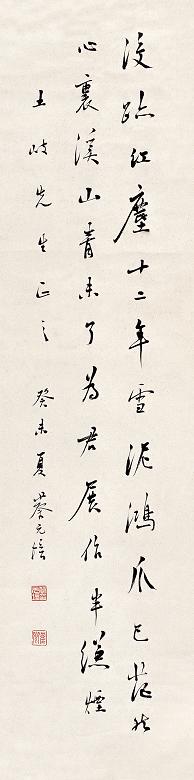 跡紅塵十二年雪泥鴻爪已茫然
心裏溪山青未了為君展作半煙
玉岐先生正之 癸未夏蔡元培